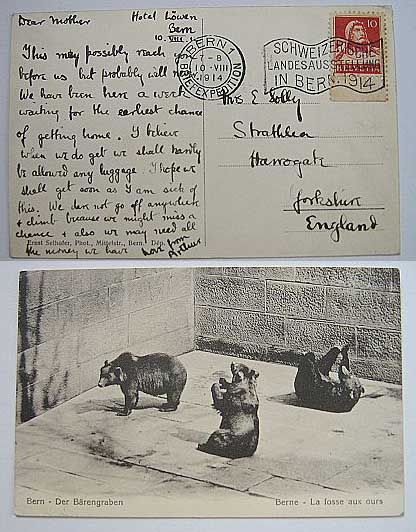 Dear Mother
Hotel Löwen
Bern
10. VIII
This may possibly reach you
before us but probably will not.
We have been here a week
waiting for the earliest chance
of getting home. I believe
when we do get we shall hardly
be allowed any luggage. I hope we
shall get soon as I am sick of
this. We dare not go off anywhere
& climb because we might miss a
chance & also we may need all
the money we have
love from
Arthur
Ernst Selhofer, Phot., Mittelstr., Bern. Dép.
BERN 1
7-8
10 VIII
1914
BRIEFEXPEDITION
SCHWEIZERISCHE
LANDESAUSSTELLUNG
IN BERN 1914
10
HELVETIA
Mrs E Solly
Strathlea
Harrogate
Yorkshire
England
Bern - Der Bärengraben
Berne - La fosse aux ours